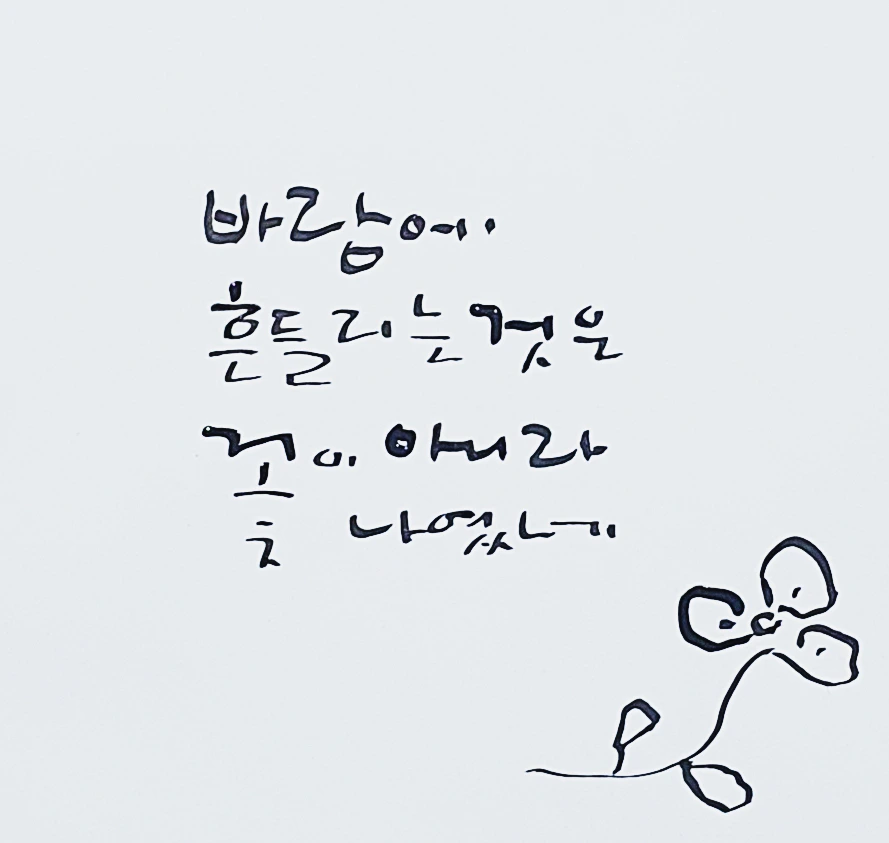 바람에
흔들리는것은
꽃이 아니라
나였네